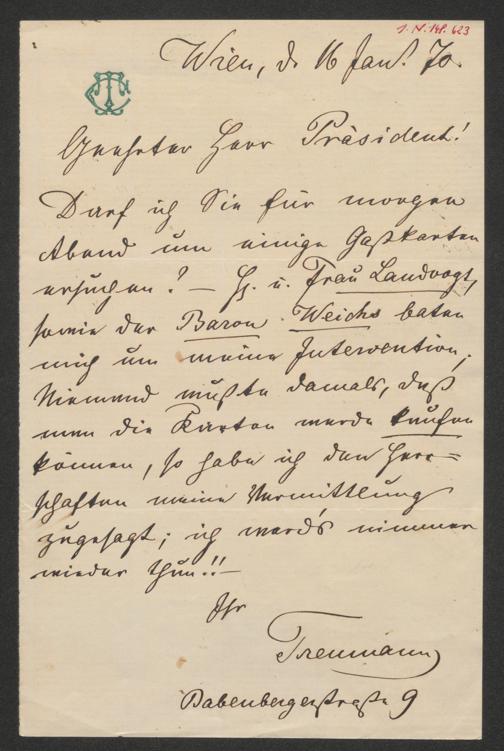 J. N. 148.623
Wien, d. 16 Jan. 70.
Geehrter Herr Präsident!
Darf ich Sie für morgen
Abend um einige Gaßkarten
ersuchen? — H. u. Frau Landvogt,
sowie der Baron Weichs baten
mich um meine Intervention;
Niemand wußte damals, daß
man die Karten werde kaufen
können, so habe ich den Herr=
schaften meine Vermittlung
zugesagt; ich werd's nimmer
wieder thun!! —
Ihr
Treumann
Babenbergerstraße 9